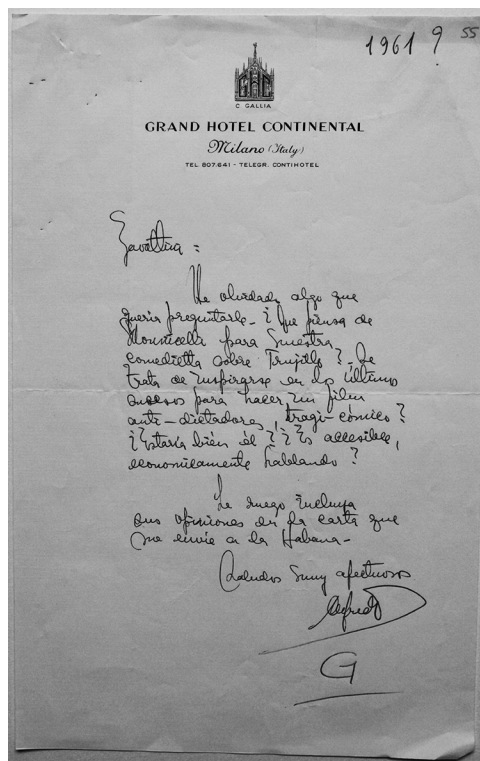 1961 ? 55
C. GALLIA
GRAND HOTEL CONTINENTAL
Milano (Italy)
TEL 807.641 - TELEGR. CONTIHOTEL
Zavattini :
He olvidado algo que
quería preguntarle - ¿ Que piensa de
Monnicelli para nuestra
comedietta sobre Trujillo ? - Se
trata de inspirarse en los último
sucesos para hacer un film
anti-dictadores, tragi-cómico ?
¿ Estaría bién él ? ¿ Es accesible,
economicamente hablando ?
Le ruego incluya
sus opiniones en la carta que
me envíe a la Habana -
Saludos muy afectuosos
Alfredo
G